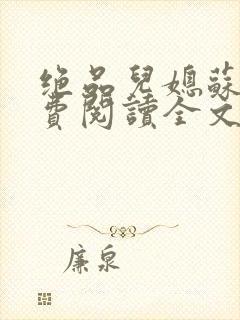 绝品兒媳蘇
費閱讀全文
廉泉